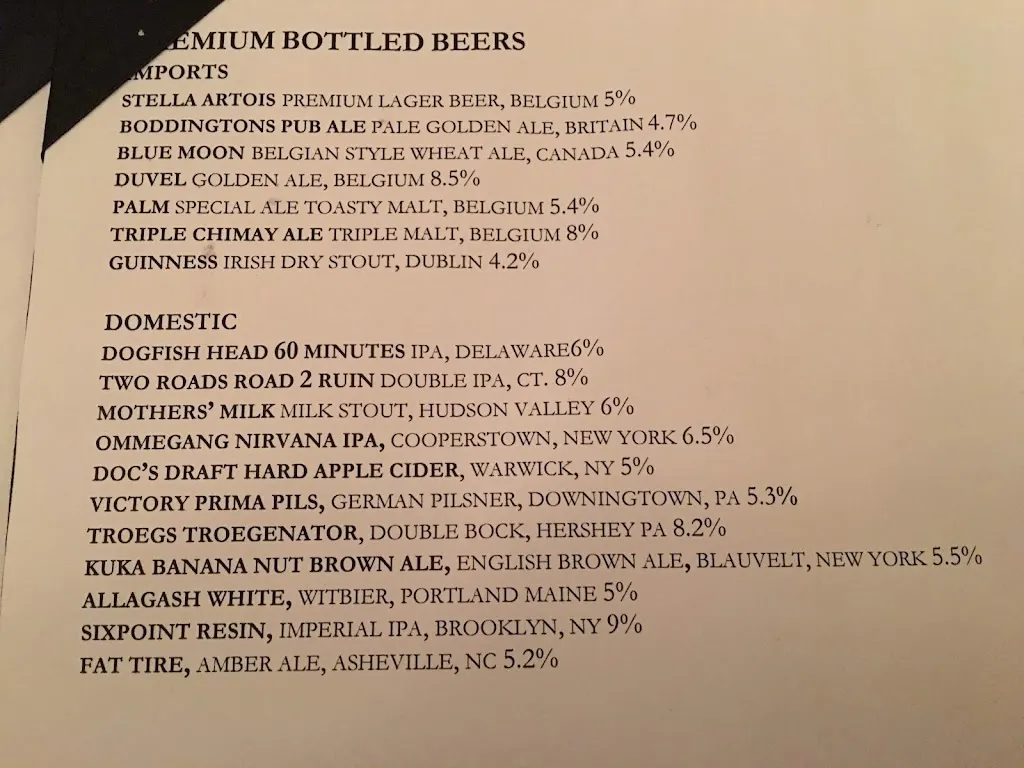 EMIUM BOTTLED BEERS
IMPORTS
STELLA ARTOIS PREMIUM LAGER BEER, BELGIUM 5%
BODDINGTONS PUB ALE PALE GOLDEN ALE, BRITAIN 4.7%
BLUE MOON BELGIAN STYLE WHEAT ALE, CANADA 5.4%
DUVEL GOLDEN ALE, BELGIUM 8.5%
PALM SPECIAL ALE TOASTY MALT, BELGIUM 5.4%
TRIPLE CHIMAY ALE TRIPLE MALT, BELGIUM 8%
GUINNESS IRISH DRY STOUT, DUBLIN 4.2%
DOMESTIC
DOGFISH HEAD 60 MINUTES IPA, DELAWARE6%
TWO ROADS ROAD 2 RUIN DOUBLE IPA, CT. 8%
MOTHERS' MILK MILK STOUT, HUDSON VALLEY 6%
OMMEGANG NIRVANA IPA, COOPERSTOWN, NEW YORK 6.5%
DOC'S DRAFT HARD APPLE CIDER, WARWICK, NY 5%
VICTORY PRIMA PILS, GERMAN PILSNER, DOWNINGTOWN, PA 5.3%
TROEGS TROEGENATOR, DOUBLE BOCK, HERSHEY PA 8.2%
KUKA BANANA NUT BROWN ALE, ENGLISH BROWN ALE, BLAUVELT, NEW YORK 5.5%
ALLAGASH WHITE, WITBIER, PORTLAND MAINE 5%
SIXPOINT RESIN, IMPERIAL IPA, BROOKLYN, NY 9%
FAT TIRE, AMBER ALE, ASHEVILLE, NC 5.2%